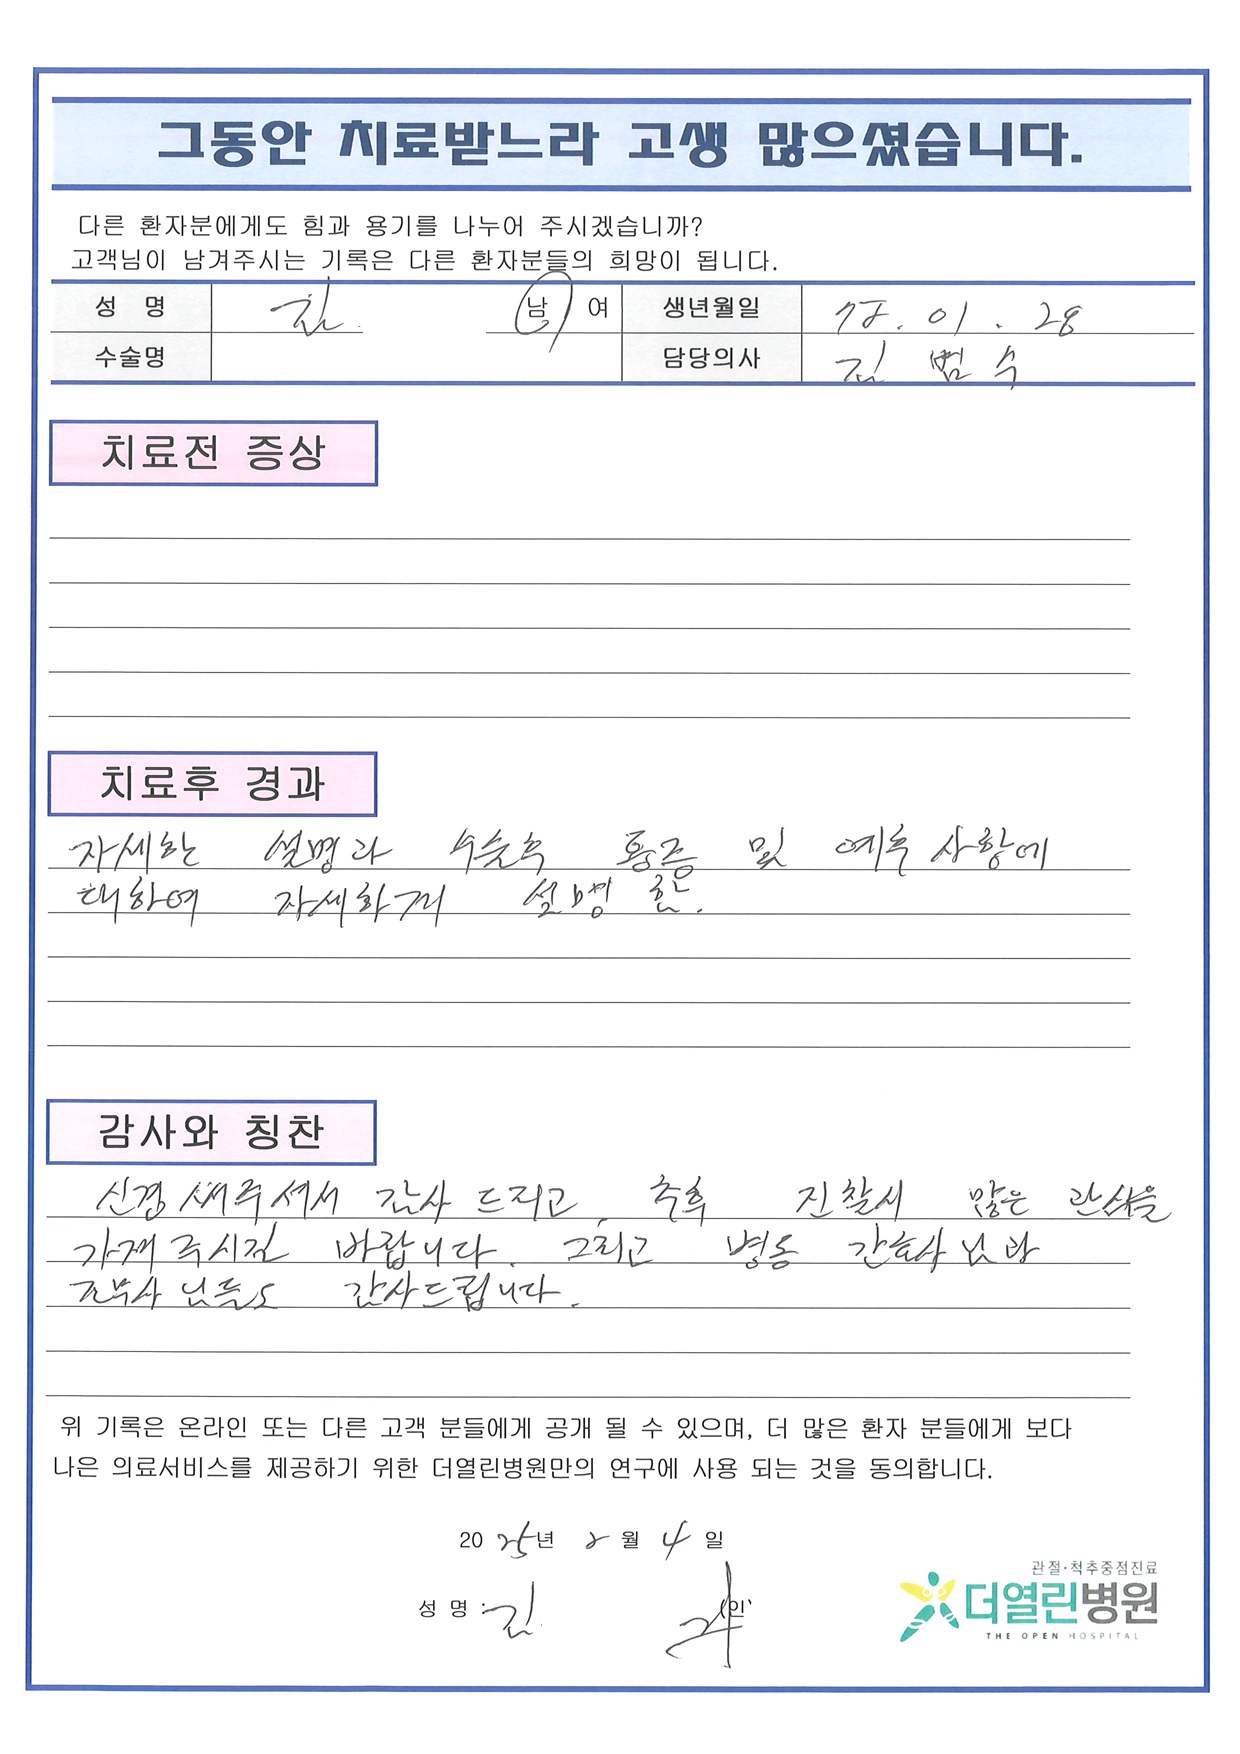 그동안 치료받느라 고생 많으셨습니다.
다른 환자분에게도 힘과 용기를 나누어 주시겠습니까?
고객님이 남겨주시는 기록은 다른 환자분들의 희망이 됩니다.
성 명 김 남 여 생년월일 .01.28
수술명 담당의사 김범수
치료전 증상
치료후 경과
자세한 설명과 수술후 통증 및 예후 사항에
대하여 자세하게 설명 함.
감사와 칭찬
신경써주셔서 감사 드리고, 추후 진찰시 많은 관심을
가져주시길 바랍니다. 그리고 병동 간호사님과
조무사님들도 감사드립니다.
위 기록은 온라인 또는 다른 고객 분들에게 공개 될 수 있으며, 더 많은 환자 분들에게 보다
나은 의료서비스를 제공하기 위한 더열린병원만의 연구에 사용 되는 것을 동의합니다.
2025년 2월 4일
성 명 : 김 (인)
관절·척추중점진료
더열린병원
THE OPEN HOSPITAL